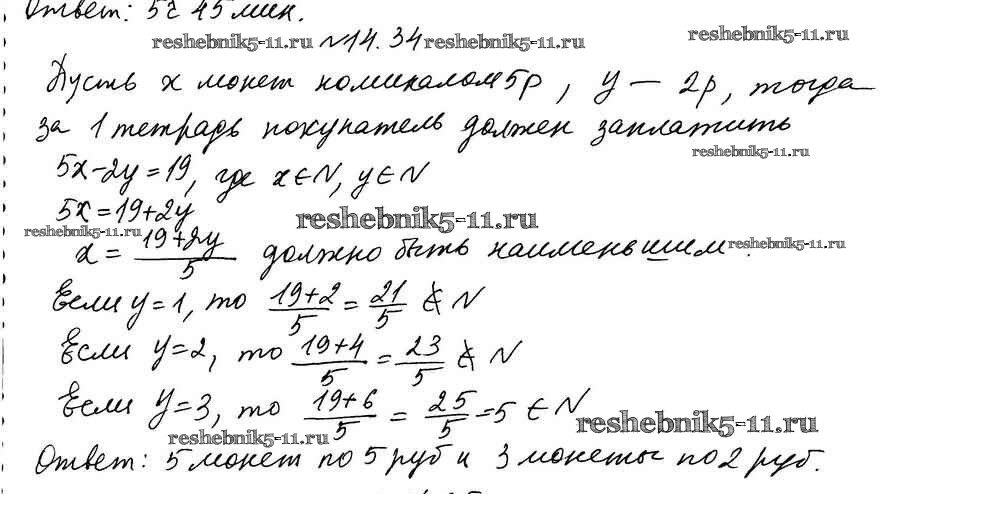 Ответ: 5с 45 мин.
reshebnik5-11.ru №14.34 reshebnik5-11.ru reshebnik5-11.ru
Пусть x монет номиналом 5р, y — 2р, тогда
за 1 тетрадь покупатель должен заплатить
reshebnik5-11.ru
5x-2y=19, где x∈N, y∈N
5x=19+2y reshebnik5-11.ru
reshebnik5-11.ru
x = (19+2y)/5 должно быть наименьшим. reshebnik5-11.ru
Если y=1, то (19+2)/5 = 21/5 ∉ N
Если y=2, то (19+4)/5 = 23/5 ∉ N
Если y=3, то (19+6)/5 = 25/5 =5 ∈ N
reshebnik5-11.ru reshebnik5-11.ru
Ответ: 5 монет по 5 руб и 3 монеты по 2 руб.